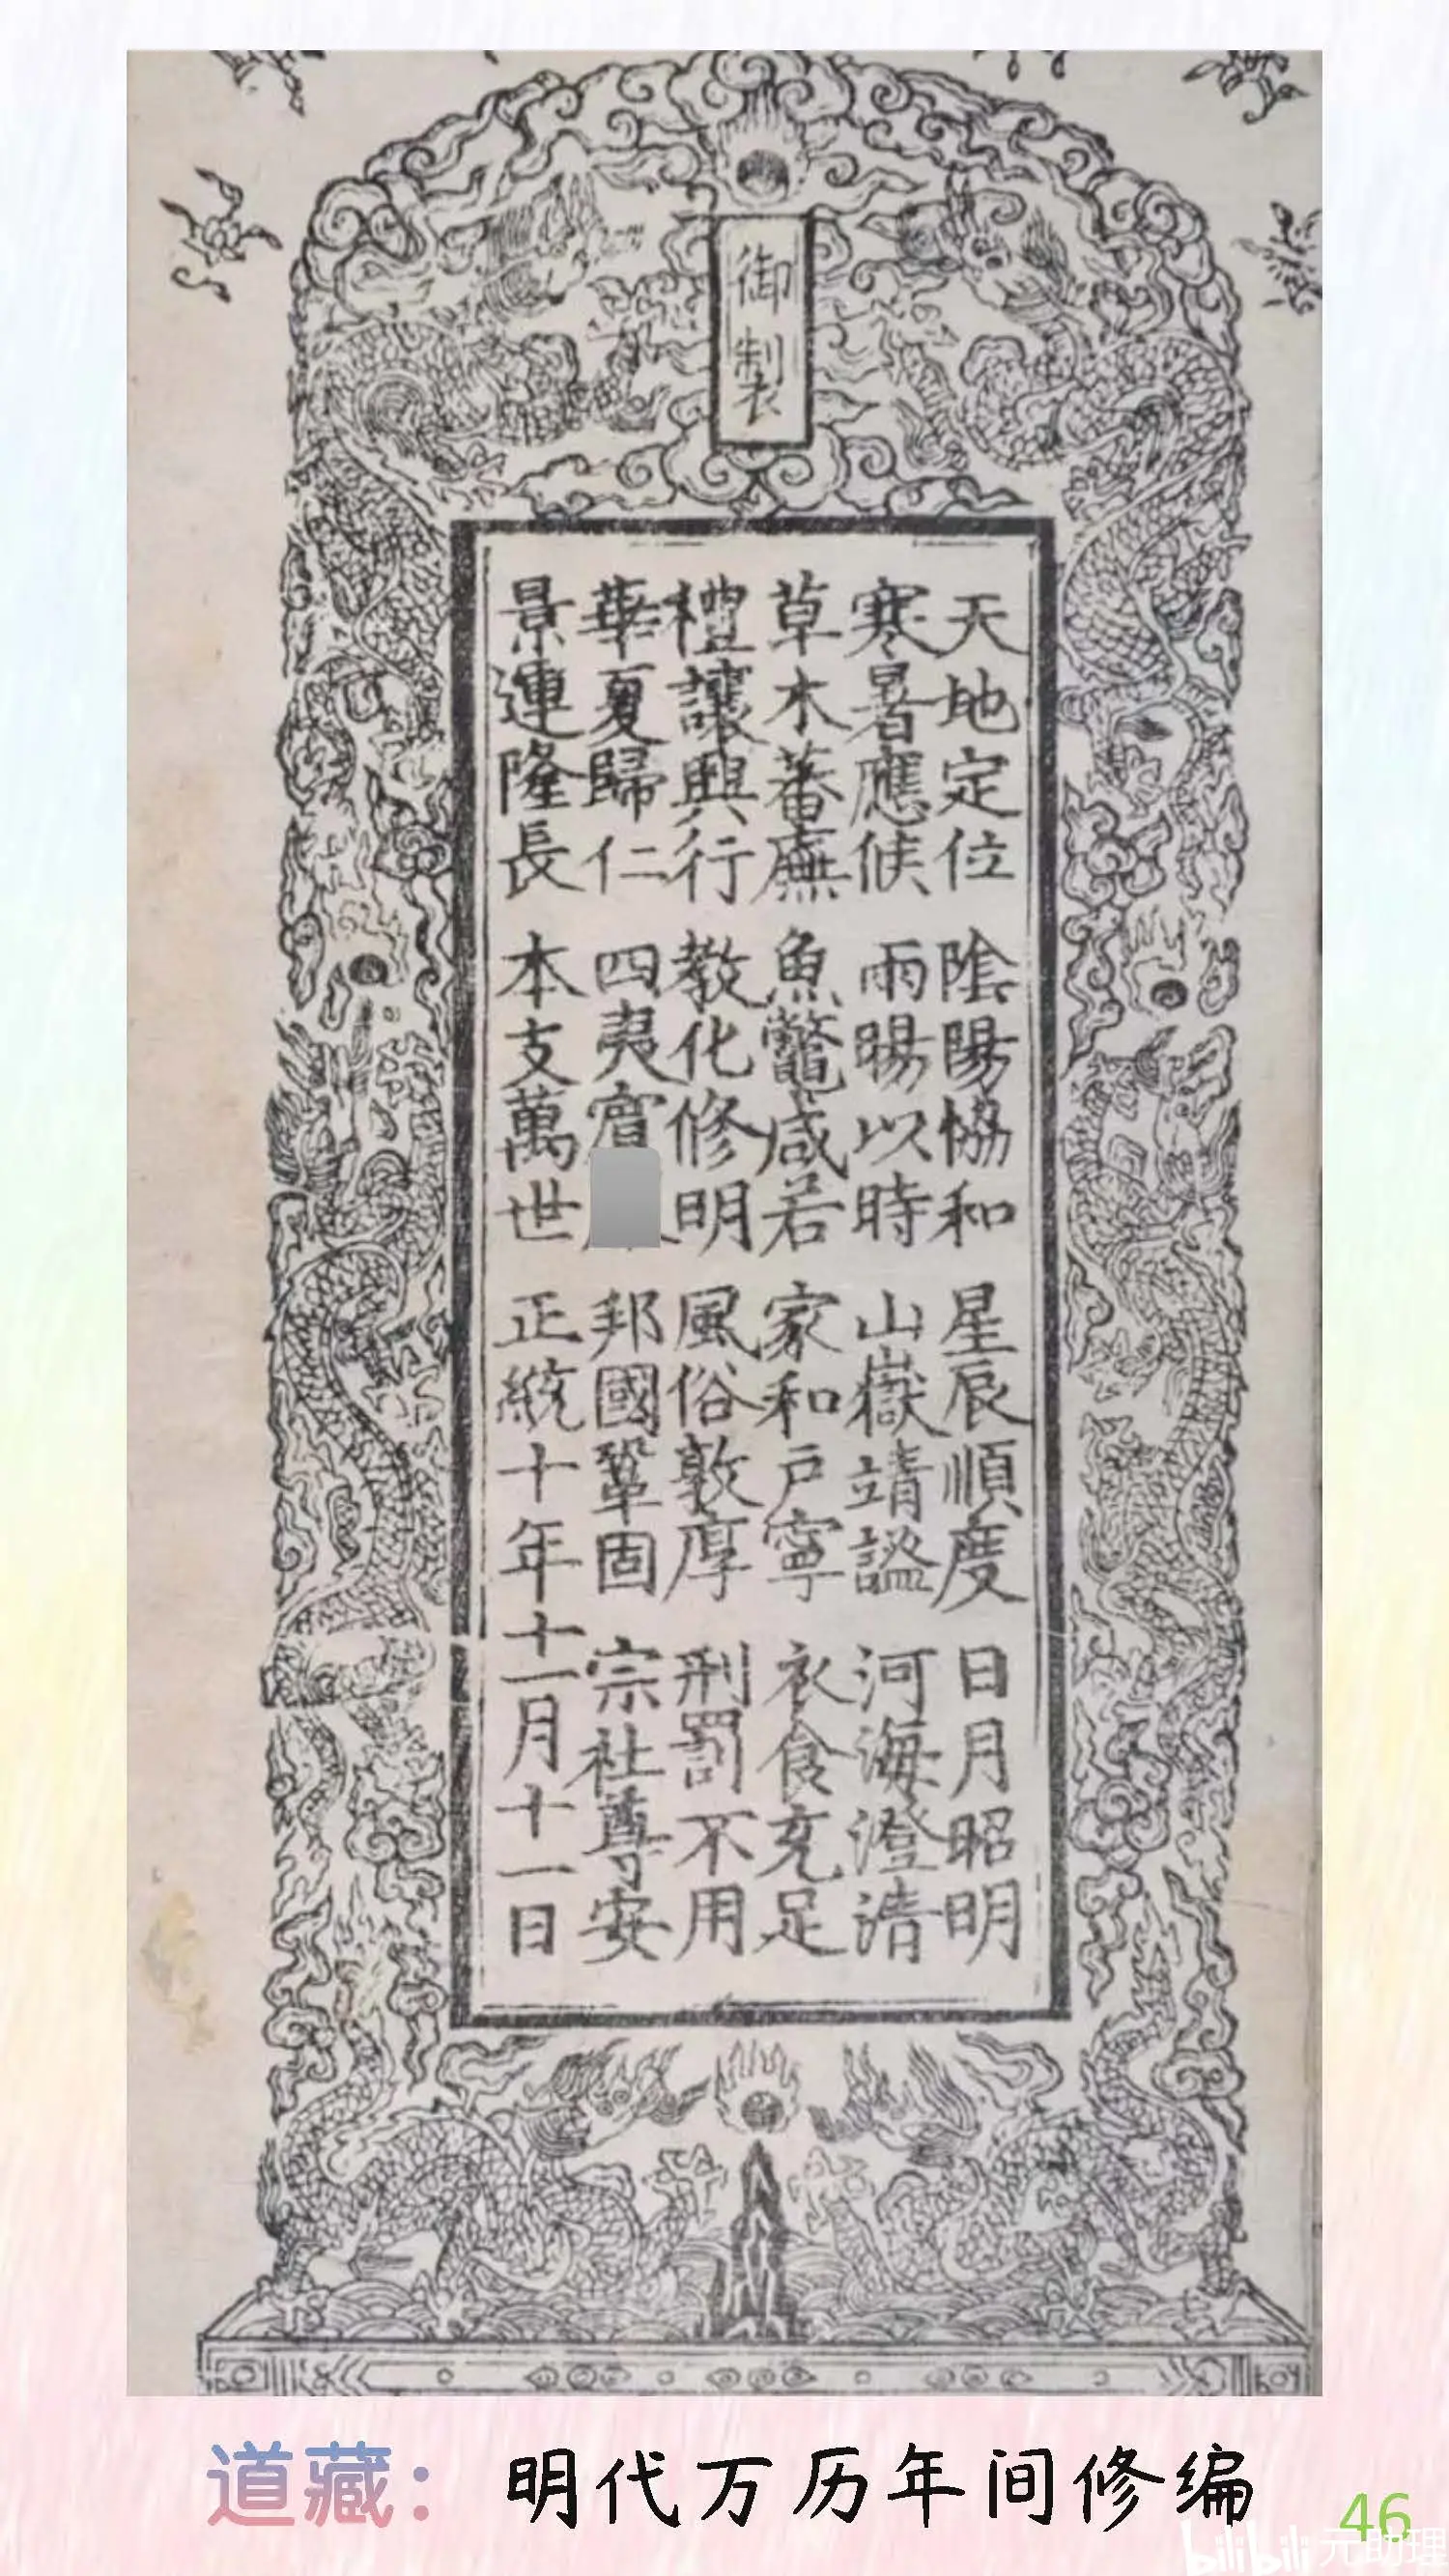 御製
天地定位 陰陽協和 星辰順度 日月昭明
寒暑應候 雨暘以時 山嶽靖謐 河海澄清
草木蕃廡 魚鼈咸若 家和戶寧 衣食充足
禮讓興行 教化修明 風俗敦厚 刑罰不用
華夏歸仁 四夷賓 邦國鞏固 宗社尊安
景運隆長 本支萬世 正統十年十一月十一日
道藏：明代万历年间修编
46
bilibili 元助理